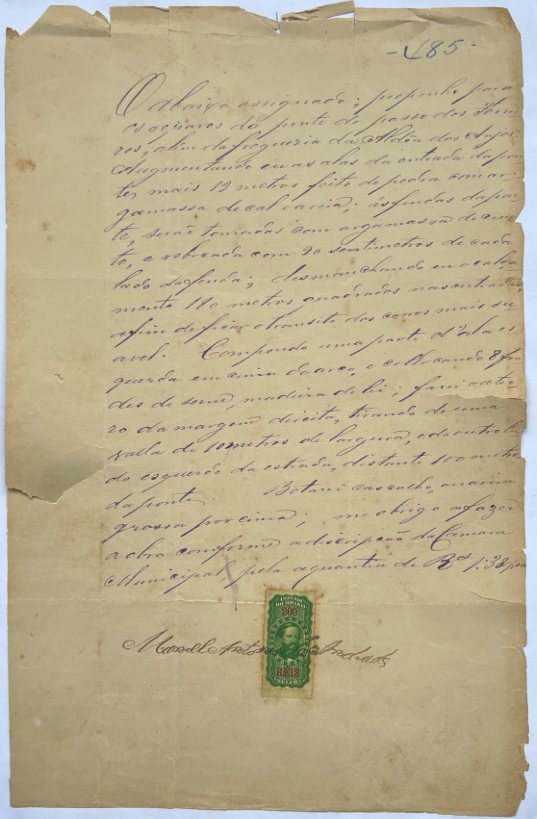 - 485 -
O abaixo assignado; proponho para
os reparos da ponte do passo dos Ferrei
ros, alem da freguezia da Aldêa dos Anjos.
Augmentando eu as alas da entrada da pon
te, mais 12 metros feito de pedra com ar
gamassa de cal e areia; as fendas da pon
te, serão tomadas com argamassa de cimen
to, e rebocada com 20 sentimetros de cada
lado da fenda; desmanchando eu o calça
mento 180 metros quadrados nas entradas
afim de ficar o transito dos carros mais su
avel. Compondo uma parte d'ala es
querda em cima do arco, e collocando 8 fra
des de serne, madeira de lei; farei
da margem direita, tirando de uma
valla de 10 metros de largura, e do outro la
do esquerdo da estrada, distante 100 metros
da ponte. Botarei cascalho, ou areia
grossa por cima; me obrigo a fazer
a obra conforme a descripção da Camara
Municipal, pela a quantia de Rs 1:38
Manoel Antonio de Andrade
IMPERIO
DO BRASIL
200
RÉIS